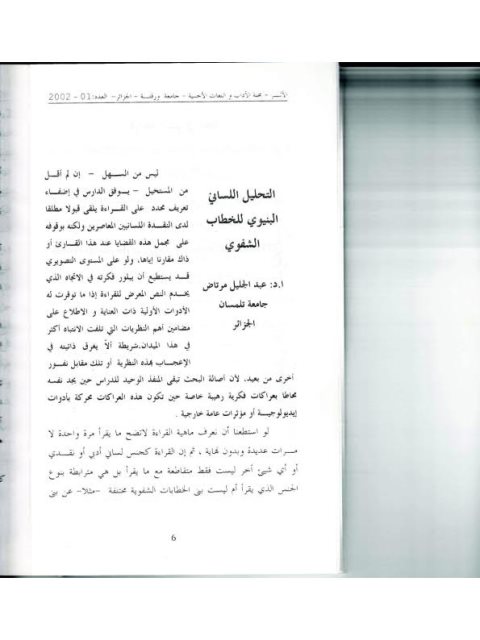 الأثـر - مجلة الآداب و اللغات الأجنبية - جامعة ورقلـة - الجزائر- العدد:01 - 2002
التحليل اللساني
البنيوي للخطاب
الشفوي
ا.د: عبد الجليل مرتاض
جامعة تلمسان
الجزائر
ليس من السـهل – إن لم أقـل
من المستحيل – يـوفق الدارس في إضفـاء
تعريف محدد على القـراءة يلقى قبولا مطلقا
لدى النقـدة اللسانيين المعاصرين ولكنه بوقوفه
على مجمل هذه القضايا عند هذا القـارئ أو
ذاك مقارنا إياها، ولو على المستوى التصويري
قـد يستطيع أن يبلور فكرته في الاتجاه الذي
يخـدم النص المعرض للقراءة إذا ما توفرت له
الأدوات الأولية ذات العناية و الاطلاع على
مضامين أهم النظريات التي تلفت الانتباه أكثر
في هذا الميدان.شريطة ألاّ يغرق ذاتيته في
الإعجـاب بهذه النظرية أو تلك مقابل نفـور
أخرى من بعيد. لأن أصالة البحث تبقى المنفذ الوحيد للدراس حين يجد نفسه
محاطا بعراكات فكرية رهيبة خاصة حين تكون هذه العراكات محركة بأدوات
إيديولوجيـة أو مؤثرات عامة خارجية .
لو استطعنا أن نعرف ماهية القراءة لاتضح ما يقرأ مرة واحدة لا
مـرات عديدة وبدون نهاية ، ثم إن القراءة كجنس لساني أدبي أو نقـدي
أو أي شيئ آخر ليست فقط متقاطعة مع ما يقرأ بل هي مترابطة بنوع
الجنس الذي يقرأ أم ليست بنى الخطابات الشفوية مختلفة –مثلا- عن بنى
6